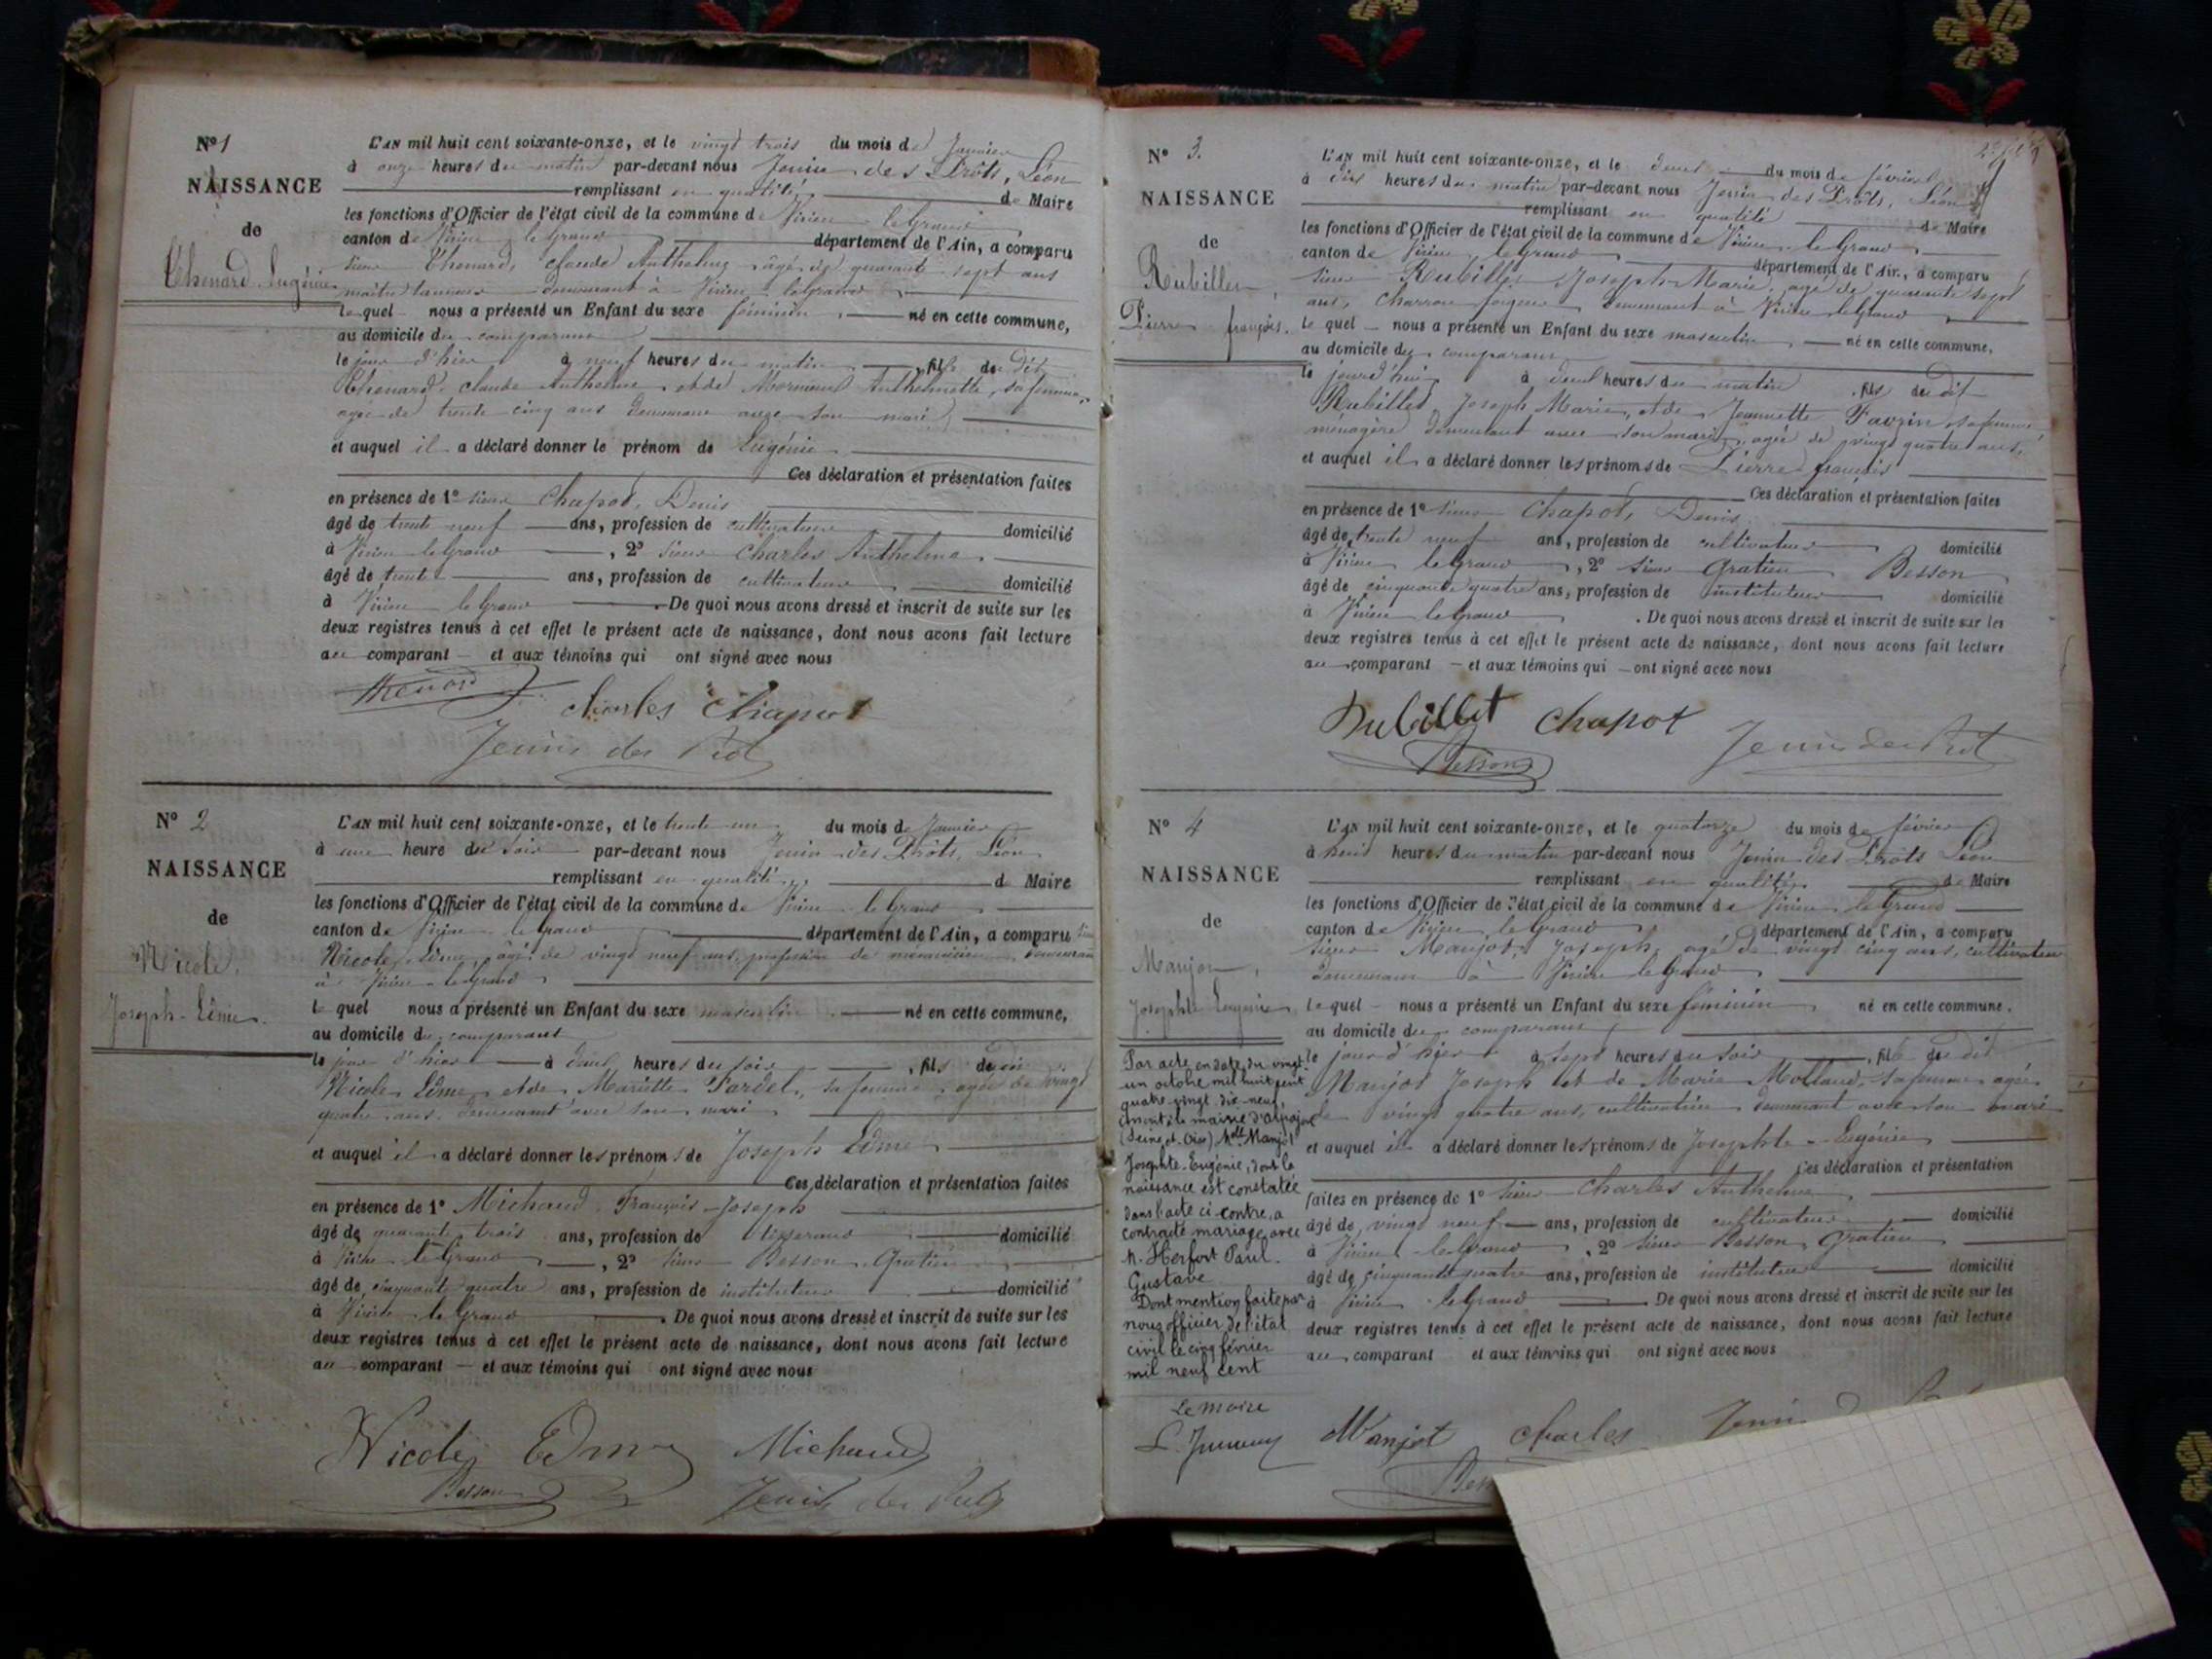 N° 1
NAISSANCE
de
Thenard Eugénie
L'AN mil huit cent soixante-onze, et le vingt trois du mois de Janvier
à onze heures du matin par-devant nous Jenin des Prôts, Léon
remplissant en qualité de Maire
les fonctions d'Officier de l'état civil de la commune de Virieu le Grand
canton de Virieu le Grand département de l'Ain, a comparu
sieur Thenard, Claude Anthelme âgé de quarante sept ans
maître tanneur demeurant à Virieu le grand
lequel nous a présenté un Enfant du sexe féminin né en cette commune,
au domicile du comparant
le jour d'hier à neuf heures du matin fille du dit
Thenard Claude Anthelme et de Anthelmette, sa femme,
agée de trente cinq ans demeurant avec son mari
et auquel il a déclaré donner le prénom de Eugénie
Ces déclaration et présentation faites
en présence de 1° sieur Chapot, Denis
âgé de trente neuf ans, profession de cultivateur domicilié
à Virieu le Grand, 2° sieur Charles Anthelme
âgé de trente ans, profession de cultivateur domicilié
à Virieu le Grand. De quoi nous avons dressé et inscrit de suite sur les
deux registres tenus à cet effet le présent acte de naissance, dont nous avons fait lecture
au comparant et aux témoins qui ont signé avec nous
Thenard
Charles Chapot
Jenin des Prôts
N° 2
NAISSANCE
de
Nicole,
Joseph-Edme.
L'AN mil huit cent soixante-onze, et le trente un du mois de Janvier
à une heure du soir par-devant nous Jenin des Prôts, Léon
remplissant en qualité d Maire
les fonctions d'Officier de l'état civil de la commune de Virieu le Grand
canton de Virieu le Grand département de l'Ain, a comparu
Nicole, Edme, âgé de vingt neuf ans, profession de menuisier, demeurant
à Virieu le Grand
le quel nous a présenté un Enfant du sexe masculin né en cette commune,
au domicile du comparant
le jour d'hier à deux heures du soir, fils de
Nicole Edme et de Mariette Pardel, sa femme, agée de vingt
quatre ans, demeurant avec son mari
et auquel il a déclaré donner les prénoms de Joseph Edme
Ces déclaration et présentation faites
en présence de 1° Michaud, François-Joseph
âgé de quarante trois ans, profession de tisserand domicilié
à Virieu le Grand, 2° sieur Besson Gratien
âgé de cinquante quatre ans, profession de instituteur domicilié
à Virieu le Grand. De quoi nous avons dressé et inscrit de suite sur les
deux registres tenus à cet effet le présent acte de naissance, dont nous avons fait lecture
au comparant et aux témoins qui ont signé avec nous
Nicole Edme Michaud
Besson Jenin des Prôts
N° 3.
NAISSANCE
de
Rubillet,
Pierre françois.
L'AN mil huit cent soixante-onze, et le deux du mois de février
à dix heures du matin par-devant nous Jenin des Prôts, Léon
remplissant en qualité de Maire
les fonctions d'Officier de l'état civil de la commune de Virieu le Grand
canton de Virieu le Grand département de l'Ain, a comparu
sieur Rubillet Joseph-Marie, agé de quarante sept
ans, charron forgeur demeurant à Virieu le Grand
le quel nous a présenté un Enfant du sexe masculin né en cette commune,
au domicile du comparant
le jourd'hui à deux heures du matin, fils du dit
Rubillet Joseph Marie, et de Jeannette Favrin, sa femme,
ménagère demeurant avec son mari, agée de vingt quatre ans,
et auquel il a déclaré donner les prénoms de Pierre françois
Ces déclaration et présentation faites
en présence de 1° sieur Chapot, Denis
âgé de trente neuf ans, profession de cultivateur domicilié
à Virieu le Grand, 2° sieur Gratien Besson
âgé de cinquante quatre ans, profession de instituteur domicilié
à Virieu le Grand. De quoi nous avons dressé et inscrit de suite sur les
deux registres tenus à cet effet le présent acte de naissance, dont nous avons fait lecture
au comparant et aux témoins qui ont signé avec nous
Rubillet Chapot Jenin des Prôts
Besson
N° 4
NAISSANCE
de
Manjot,
Josephte Eugénie
Par acte en date du vingt
un octobre mil huit cent
quatre vingt dix-neuf
dressé à la mairie d'Arpajon
(Seine et Oise) Melle Manjot
Josephte-Eugénie, dont la
naissance est constatée
dans l'acte ci-contre, a
contracté mariage avec
M. Herfort Paul
Gustave
Dont mention faite par
nous officier de l'état
civil le cinq février
mil neuf cent
Le maire
L'AN mil huit cent soixante-onze, et le quatorze du mois de février
à huit heures du matin par-devant nous Jenin des Prôts Léon
remplissant en qualité de Maire
les fonctions d'Officier de l'état civil de la commune de Virieu le Grand
canton de Virieu le Grand, département de l'Ain, a comparu
sieur Manjot, Joseph, agé de vingt cinq ans, cultivateur
demeurant à Virieu le Grand
le quel nous a présenté un Enfant du sexe féminin né en cette commune.
au domicile du comparant
le jour d'hier à sept heures du soir, fille du dit
Manjot Joseph et de Marie Mollard, sa femme agée
de vingt quatre ans, cultivatrice demeurant avec son mari
et auquel il a déclaré donner les prénoms de Josephte-Eugénie
Ces déclaration et présentation
faites en présence de 1° sieur Charles Anthelme,
âgé de vingt neuf ans, profession de cultivateur domicilié
à Virieu le Grand, 2° sieur Besson, Gratien
âgé de cinquante quatre ans, profession de instituteur domicilié
à Virieu le Grand De quoi nous avons dressé et inscrit de suite sur les
deux registres tenus à cet effet le présent acte de naissance, dont nous avons fait lecture
au comparant et aux témoins qui ont signé avec nous
Manjot Charles Jenin
Bes